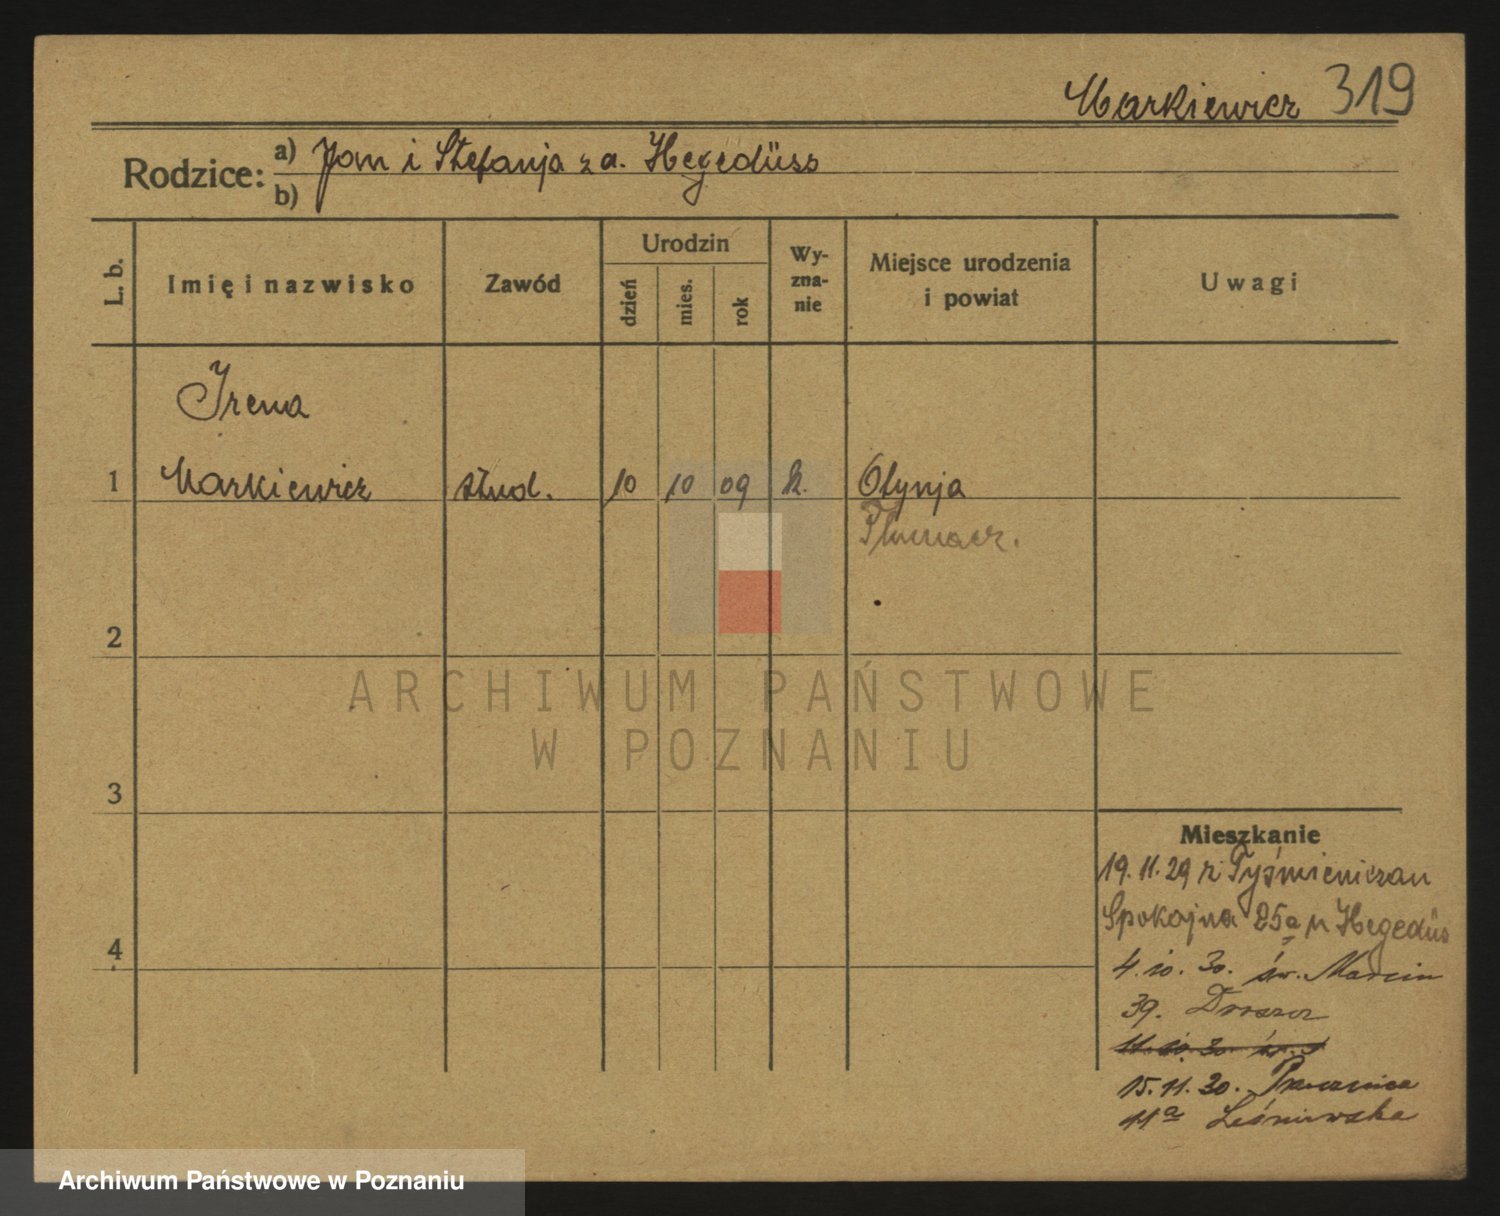 Markiewicz 319
Rodzice: a) Jan i Stefanja z d. Hegedüss
b)
L. b.
Imię i nazwisko
Zawód
Urodzin
dzień
mies.
rok
Wy-
zna-
nie
Miejsce urodzenia
i powiat
Uwagi
Irena
1 Markiewicz stud. 10 10 09 k. Otynja
Tłumacz.
2
3
4
Mieszkanie
19.11.29 z Tyśmieniczan
Spokojna 25a u Hegedüs
4.10.30. św. Marcin
39.
11.10.30 św.
15.11.30.
11a Leśniewska
ARCHIWUM PAŃSTWOWE
W POZNANIU
Archiwum Państwowe w Poznaniu